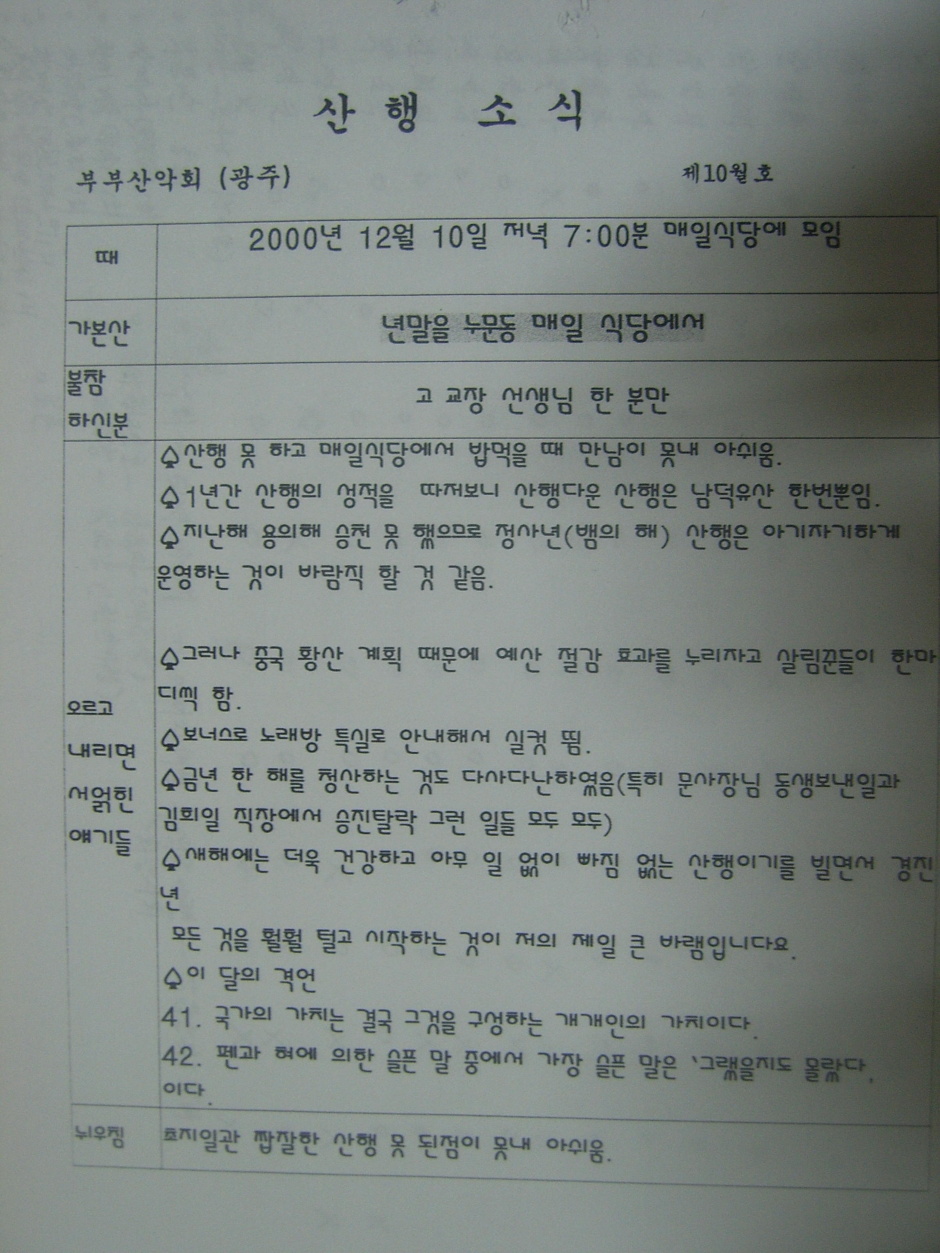 산 행 소 식
부부산악회 (광주) 제10월호
때 2000년 12월 10일 저녁 7:00분 매일식당에 모임
가본산 년말을 누문동 매일 식당에서
불참
하신분 고 교장 선생님 한 분만
♤산행 못 하고 매일식당에서 밥먹을 때 만남이 못내 아쉬움.
♤1년간 산행의 성적을 따저보니 산행다운 산행은 남덕유산 한번뿐임.
♤지난해 용의해 승천 못 했으므로 정사년(뱀의 해) 산행은 아기자기하게
운영하는 것이 바람직 할 것 같음.
♤그러나 중국 황산 계획 때문에 예산 절감 효과를 누리자고 살림꾼들이 한마
디씩 함.
♤보너스로 노래방 특실로 안내해서 실컷 뜀.
♤금년 한 해를 청산하는 것도 다사다난하였음(특히 문사장님 동생보낸일과
김회일 직장에서 승진탈락 그런 일들 모두 모두)
♤새해에는 더욱 건강하고 아무 일 없이 빠짐 없는 산행이기를 빌면서 경진
년
모든 것을 훨훨 털고 시작하는 것이 저의 제일 큰 바램입니다요.
♤이 달의 격언
41. 국가의 가치는 결국 그것을 구성하는 개개인의 가치이다.
42. 펜과 혀에 의한 슬픈 말 중에서 가장 슬픈 말은 '그랬을지도 몰랐다,
이다.
오르고
내리면
서얽힌
얘기들
뉘우침 초지일관 짭잘한 산행 못 된점이 못내 아쉬움.